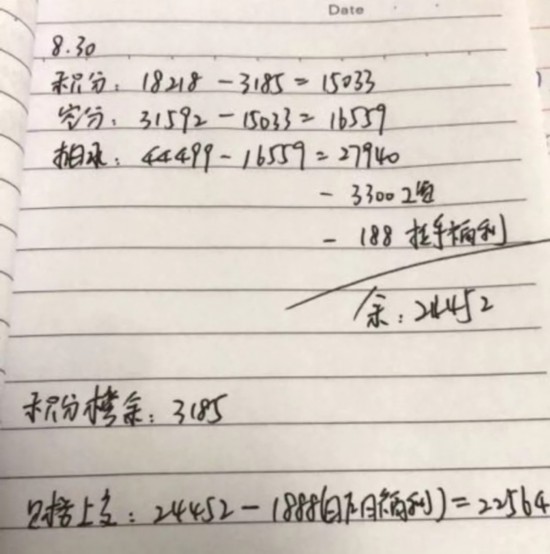 Date
8.30
积分: 18218 - 3185 = 15033
分: 31592 - 15033 = 16559
: 44499 - 16559 = 27940
- 3300 工资
- 188 挂手福利
余: 24452
积分榜余: 3185
上交: 24452 - 1888(日福利) = 22564